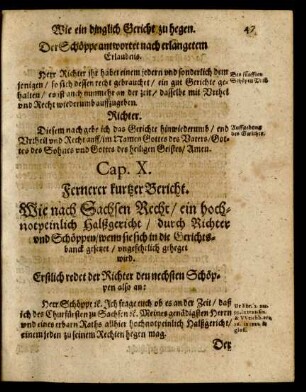 Wie ein dinglich Gericht zu hegen. 47
Der Schöppe antwortet nach erlangetem
Erlaubnis.
Herr Richter ihr habet einem jedern und sonderlich dem
jenigen / so sich dessen recht gebrauchet / ein gut Gerichte ge-
halten / es ist auch nunmehr an der zeit / dasselbe mit Urthel
und Recht wiederumb auffzugeben.
Des
Schöppen
Richter.
Diesem nach gebe ich das Gerichte hinwiederumb / mit
Urtheil und Recht auff / im Namen Gottes des Vaters / Got-
tes des Sohnes und Gottes des heiligen Geistes / Amen.
Auffgebung
des Gerichts.
Cap. X.
Fernerer kurtzer Bericht.
Wie nach Sachsen Recht / ein hoch-
notpeinlich Halßgericht / durch Richter
und Schöppen / wenn sie sich in die Gerichts-
banck gesetzet / ungefehrlich geheget
wird.
Erstlich redet der Richter den nechsten Schöp-
pen also an:
Herr Schöppe ꝛc. Ich frage euch ob es an der Zeit / daß
ich des Churfürsten zu Sachsen ꝛc. Meines genädigsten Herrn
und eines erbarn Raths allhier hochnotpeinlich Halßgericht /
einem jeden zu seinem Rechten hegen mag.
Der